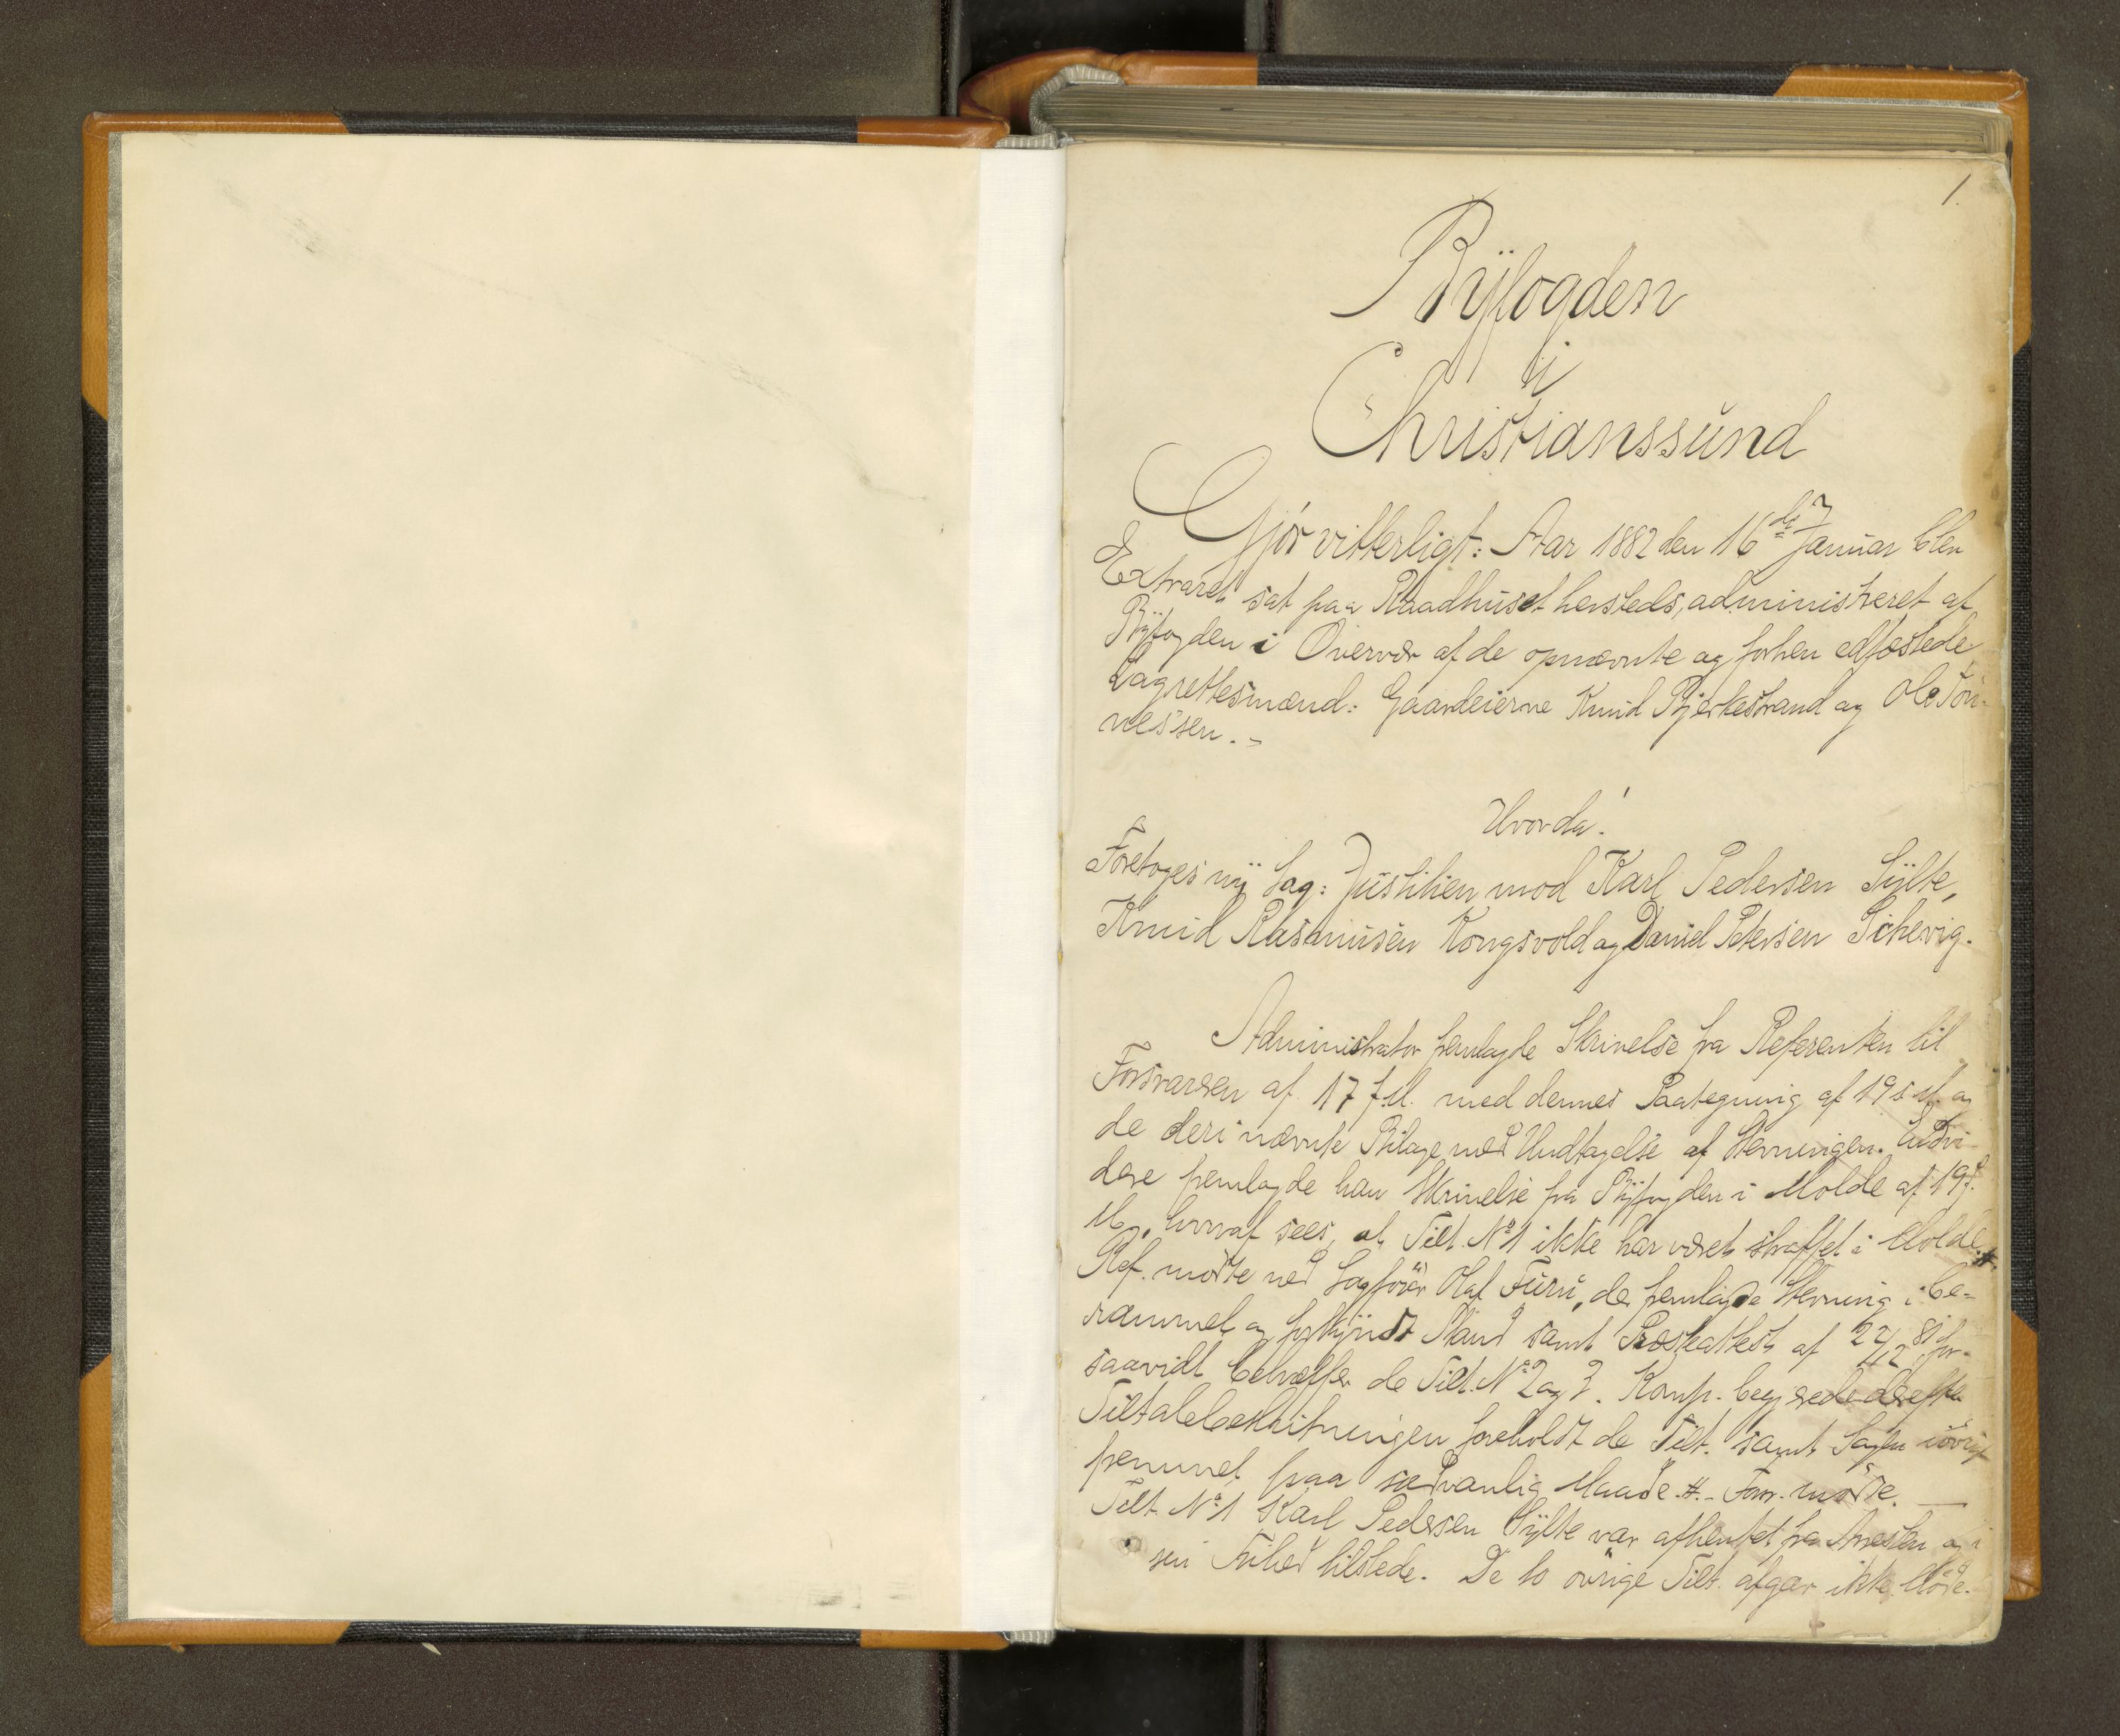 1.
Byfogden
i
Christianssund
Gjör vitterligt: Aar 1882 den 16de Januar blev
Extraret sat paa Raadhuset hersteds, administreret af
Byfogden i Overvær af de opnævnte og forhen edfæstede
Lagrettesmænd: Gaardeierne Knud Bjerkestrand og Ole Tön-
nessen. -
Hvorda!
Foretoges ny Sag: Justitien mod Karl Pedersen Sylte,
Knud Rasmusen Kongsvold og Daniel Petersen
Administrator fremlagde Skrivelse fra Referenten til
Forsvareren af 17 f. M. med dennes Paategning af 19 s. M. og
de deri nævnte Bilage med Undtagelse af Stevningen. Endvi-
dere fremlagde han Skrivelse fra Byfogden i Molde af 19 f.
M., hvoraf sees, at Tilt. No 1 ikke har været straffet i Molde #.
Ref. mödte ved Sagförer Olaf Furu, der fremlagde Stevning i be-
rammet og forkyndt Stand samt Præsteattest af 22/12 81 for-
saavidt betræffer de Tilt. No 2 og 3. Komp. begjærede derefter
Tiltalebeslutningen foreholdt de Tilt. samt Sagen iövrigt
fremmet paa sædvanlig Maade #. - Forsv. mödte. —
Tilt. No 1 Karl Pedersen Sylte var afhentet fra Arresten og i
sin Frihed tilstede. De to övrige Tilt. afgav ikke Möde.